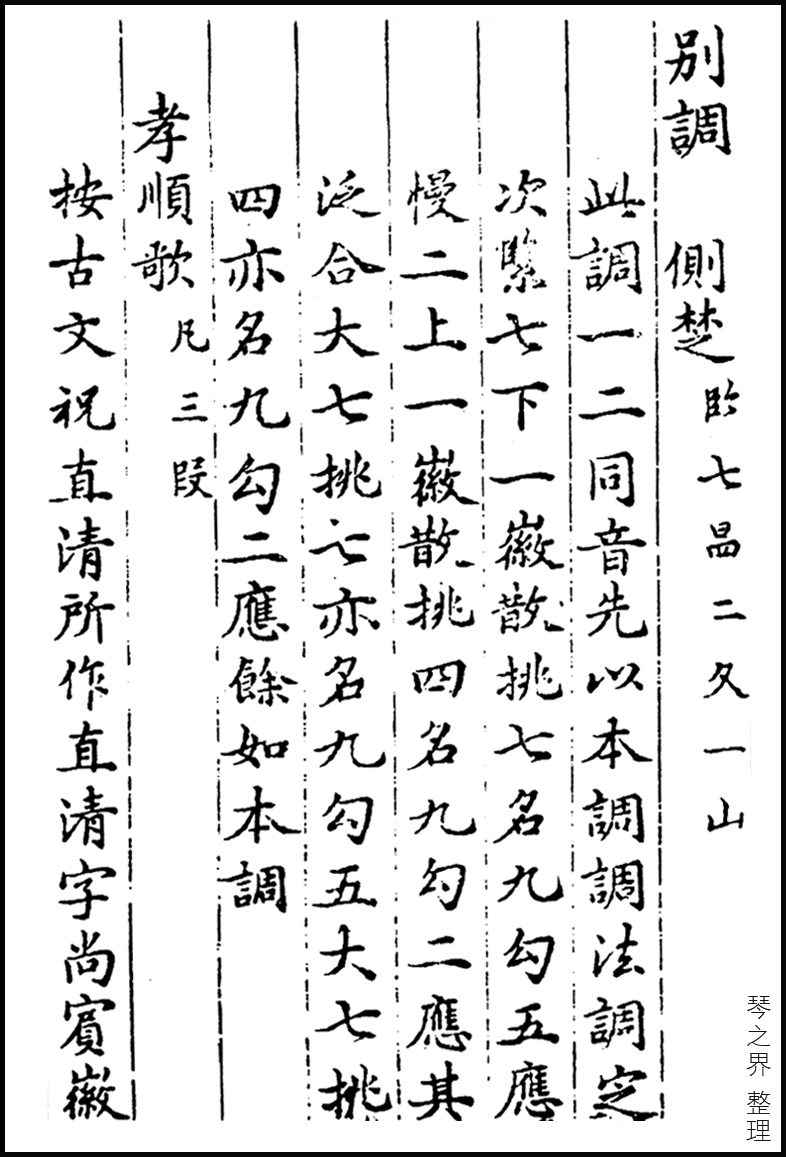 別調 側楚 七 二 一 山
此調一二同音先以本調調法調定
次緊七下一徽散挑七名九勾五應
慢二上一徽散挑四名九勾二應其
泛合大七挑七亦名九勾五大七挑
四亦名九勾二應餘如本調
孝順歌 凡三段
按古文祝直清所作直清字尚賓徽
琴之界 整理